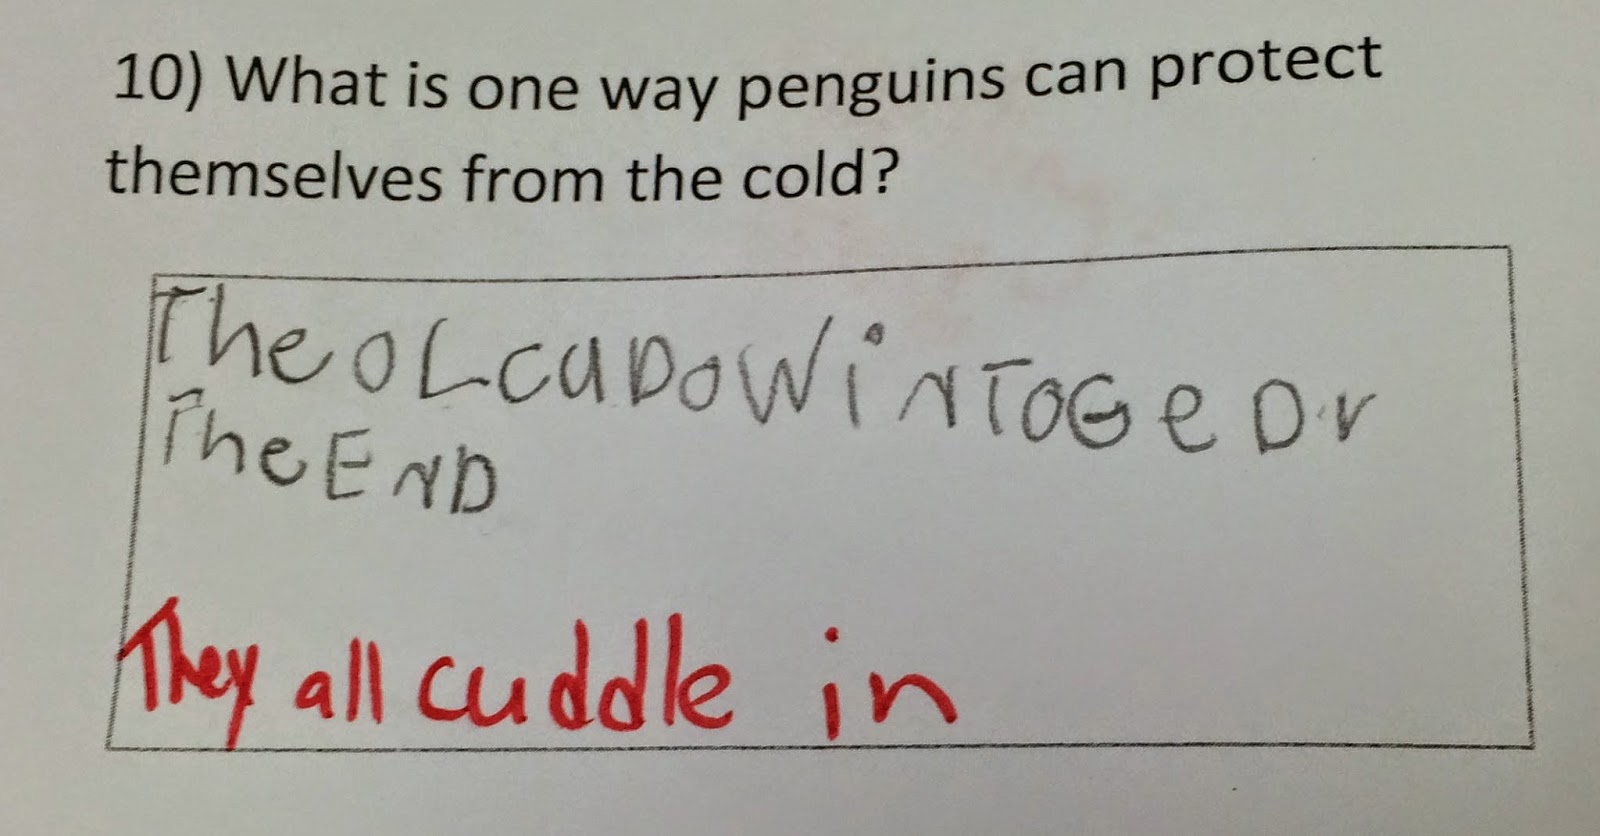 10) What is one way penguins can protect
themselves from the cold?
The OL cuDoW iN ToGeDr
The END
They all cuddle in